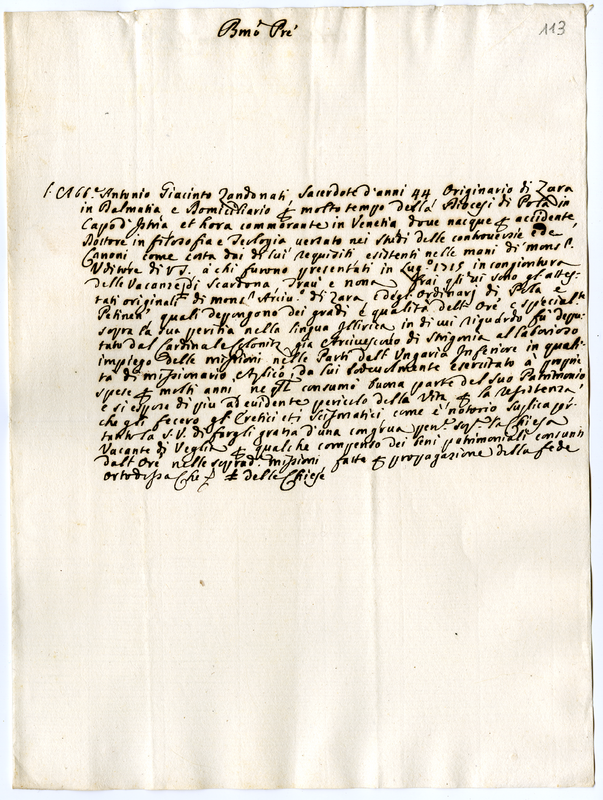 Bmo Pre
113
L'Abb.e Antonio Giacinto Zandonati, Sacerdote d'anni 44 Originario di Zara
in Dalmatia e Domiciliario p molto tempo della Diocesi di Pola in
Capo d'Istria et hora commorante in Venetia dove nacque p accidente,
Dottore in filosofia e Teologia versato nei studi delle controversie e de
Canoni come costa dai di lui requisiti esistenti nelle mani di mons.r
Uditore di VS. à chi furono presentati in Lug.o 1715 in congiontura
delle Vacanze di Scardona, Traù e nona frai qli vi sono gl'attes-
tati originali di mons.r Arciv.o di Zara, e degl'Ordinarj di Pola e
Petina, quali depongono dei gradi e qualità dell'Ore e specialte
sopra la sua peritia nella lingua Illirica in di cui riguardo fu depu-
tato dal Cardinale Colonitz già Arcivescovo di Strigonia al laborioso
impiego delle missioni nelle Parti dell'Ungaria Inferiore in quali-
tà di missionario Aplico, da lui lodevolmente esercitato à proprie
spese p molti anni ne qli consumò buona parte del suo Patrimonio
e si espose di più ad evidente pericolo della vita p la resistenza
che gli fecero gl'Eretici et i Scismatici, come è notorio suplica per-
tanto la S.V. di fargli gratia d'una congrua pen.e sop.a la Chiesa
Vacante di Veglia p qualche compenso dei beni patrimoniali consunti
dall'Ore nelle soprad.e missioni fatte p propagazione della fede
Ortodossa Che delle Chiese